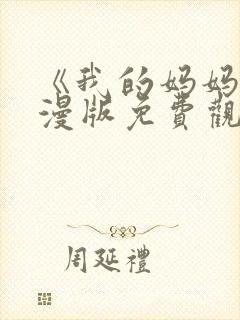 《我的妈妈
漫版免費觀
周延禮